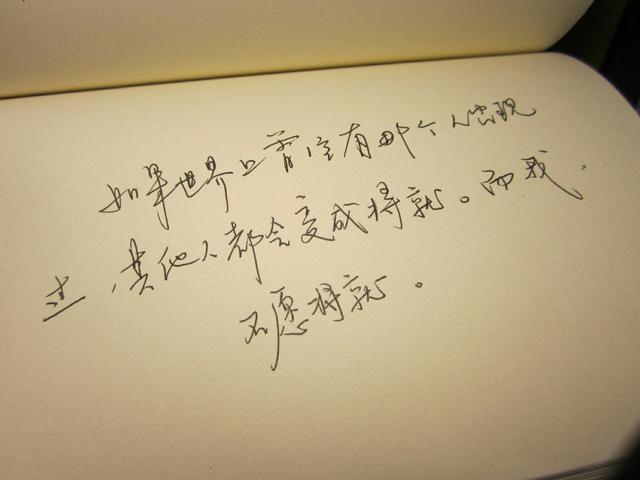 如果世界上曾经有那个人出现
过，其他人都会变成将就。而我，
不愿将就。